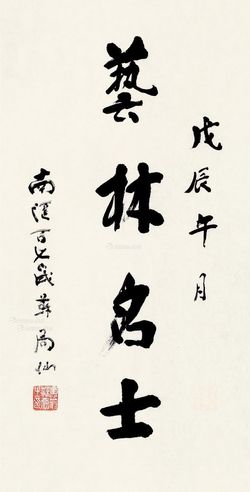 戊辰午月
藝林名士
南溪百七歲蘇局仙